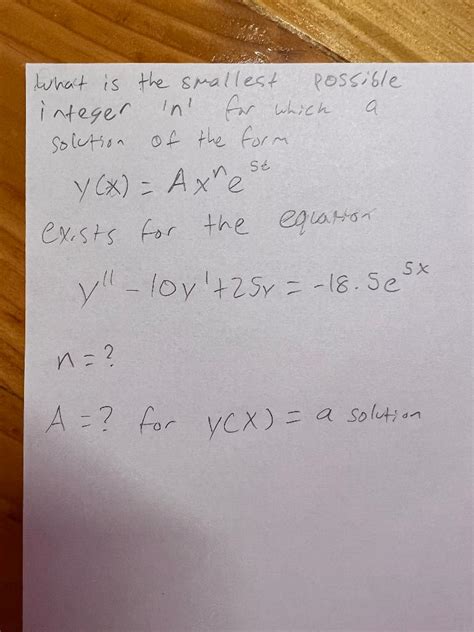 what is the smallest possible
integer 'n' for which a
solution of the form
y(x) = Ax^n e^5t
exists for the equation
y'' - 10y' + 25y = -18.5e^5x
n = ?
A = ? for y(x) = a solution